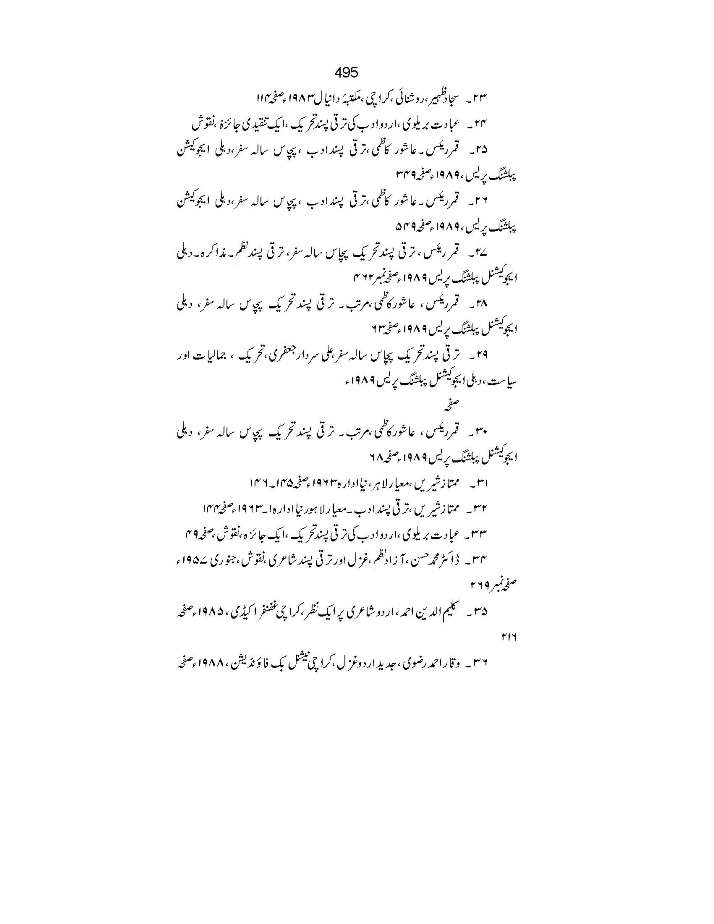 495
۲۳۔ سجادظہیر ،روشنائی ،کراچی ،مکتبۂ دانیال۱۹۸۳ءصفحہ۱۱۴
۲۴۔ عبادت بریلوی ،اردوادب کی ترقی پسندتحریک ،ایک تنقیدی جائزۂ ،نقوش
۲۵۔ قمررئیس۔عاشور کاظمی ،ترقی پسندادب ، پچاس سالہ سفر ،دہلی ایجوکیشن
پبلشنگ پریس ،۱۹۸۹ءصفحہ۳۴۹
۲۶۔ قمررئیس۔عاشور کاظمی ،ترقی پسندادب ، پچاس سالہ سفر ،دہلی ایجوکیشن
پبلشنگ پریس ،۱۹۸۹ءصفحہ۵۴۹
۲۷۔ قمر رئیس ، ترقی پسندتحریک پچاس سالہ سفر ، ترقی پسندنظم ۔ مذاکرہ ۔دہلی
ایجوکیشنل پبلشنگ پریس۱۹۸۹ءصفحہنمبر۴۶۲
۲۸۔ قمررئیس ، عاشورکاظمی ،مرتب ۔ ترقی پسندتحریک پچاس سالہ سفر ، دہلی
ایجوکیشنل پبلشنگ پریس۱۹۸۹ءصفحہ۶۳
۲۹۔ ترقی پسندتحریک پچاس سالہ سفر ،علی سردارجعفری ،تحریک ، جمالیات اور
سیاست ،دہلی ایجوکیشنل پبلشنگ پریس۱۹۸۹ء
صفحہ
۳۰۔ قمررئیس ، عاشورکاظمی ،مرتب ۔ ترقی پسندتحریک پچاس سالہ سفر ، دہلی
ایجوکیشنل پبلشنگ پریس۱۹۸۹ءصفحہ۶۸
۳۱۔ ممتازشیریں ،معیارلاہر ،نیاادارہ۱۹۶۳ءصفحہ۱۴۵۔۱۴۶
۳۲۔ ممتازشیریں ،ترقی پسندادب ۔معیارلاہورنیاادارہا۔۱۹۶۳ءصفحہ۱۴۴
۳۳۔ عبادت بریلوی ،اردوادب کی ترقی پسندتحریک ،ایک جائزہ ،نقوش ،صفحہ۴۹
۳۴۔ ڈاکٹرمحمدحسن ،آزادنظم ،غزل اورترقی پسندشاعری ،نقوش ،جنوری ۱۹۵۷ء
صفحہنمبر۲۶۹
۳۵۔ کلیم الدین احمد ،اردوشاعری پرایک نظر ،کراچی غضنفراکیڈمی ،۱۹۸۵ءصفحہ
۲۱۶
۳۶۔ وقاراحمدرضوی ،جدیداردوغزل ،کراچی نیشنل بک فاؤنڈیشن ،۱۹۸۸ءصفحہ